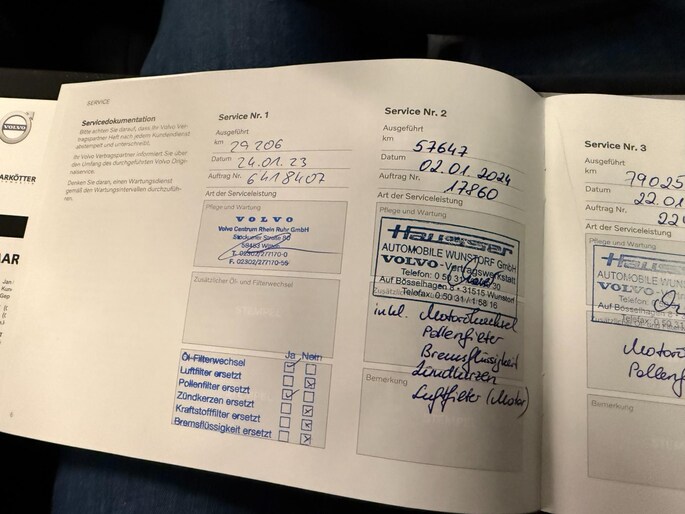 VOLVO
ARKÖTTER
MAR
SERVICE
Servicedokumentation
Bitte achten Sie darauf, dass Ihr Volvo Ver-
tragspartner Heft nach jedem Kundendienst
abstempelt und unterschreibt.
Ihr Volvo Vertragspartner informiert Sie über
den Umfang des durchgeführten Volvo Origi-
nalservice.
Denken Sie daran, einen Wartungsdienst
gemäß den Wartungsintervallen durchzufüh-
ren.
6
Service Nr. 1
Ausgeführt
km 29206
Datum 24.01.23
Auftrag Nr. 6418407
Art der Serviceleistung
Pflege und Wartung
VOLVO
Volvo Centrum Rhein Ruhr GmbH
58453 Witten
T. 02302/277170-0
F. 02302/277170-55
Zusätzlicher Öl- und Filterwechsel
Ja Nein
Öl-Filterwechsel
Luftfilter ersetzt
Pollenfilter ersetzt
Zündkerzen ersetzt
Kraftstofffilter ersetzt
Bremsflüssigkeit ersetzt
Service Nr. 2
Ausgeführt
km 57647
Datum 02.01.2024
Auftrag Nr. 17860
Art der Serviceleistung
Pflege und Wartung
Hausser
AUTOMOBILE WUNSTORF GmbH
VOLVO-Vertragswerkstatt
Telefon: 0 50 31 30
Auf Bösselhagen 8 • 31515 Wunstorf
Telefax: 0 50 31 / 1 58 16
inkl. Motorölwechsel
Pollenfilter
Bremsflüssigkeit
Zündkerzen
Luftfilter (Motor)
Bemerkung
Service Nr. 3
Ausgeführt
km 79025
Datum 22.01
Auftrag Nr. 224
Art der Serviceleistung
Pflege und Wartung
Hausser
AUTOMOBILE WUNS
VOLVO-
Telefon:
Auf Bösselhagen
Telefax: 0 50 31
Motorö
Pollenf
Bemerkung